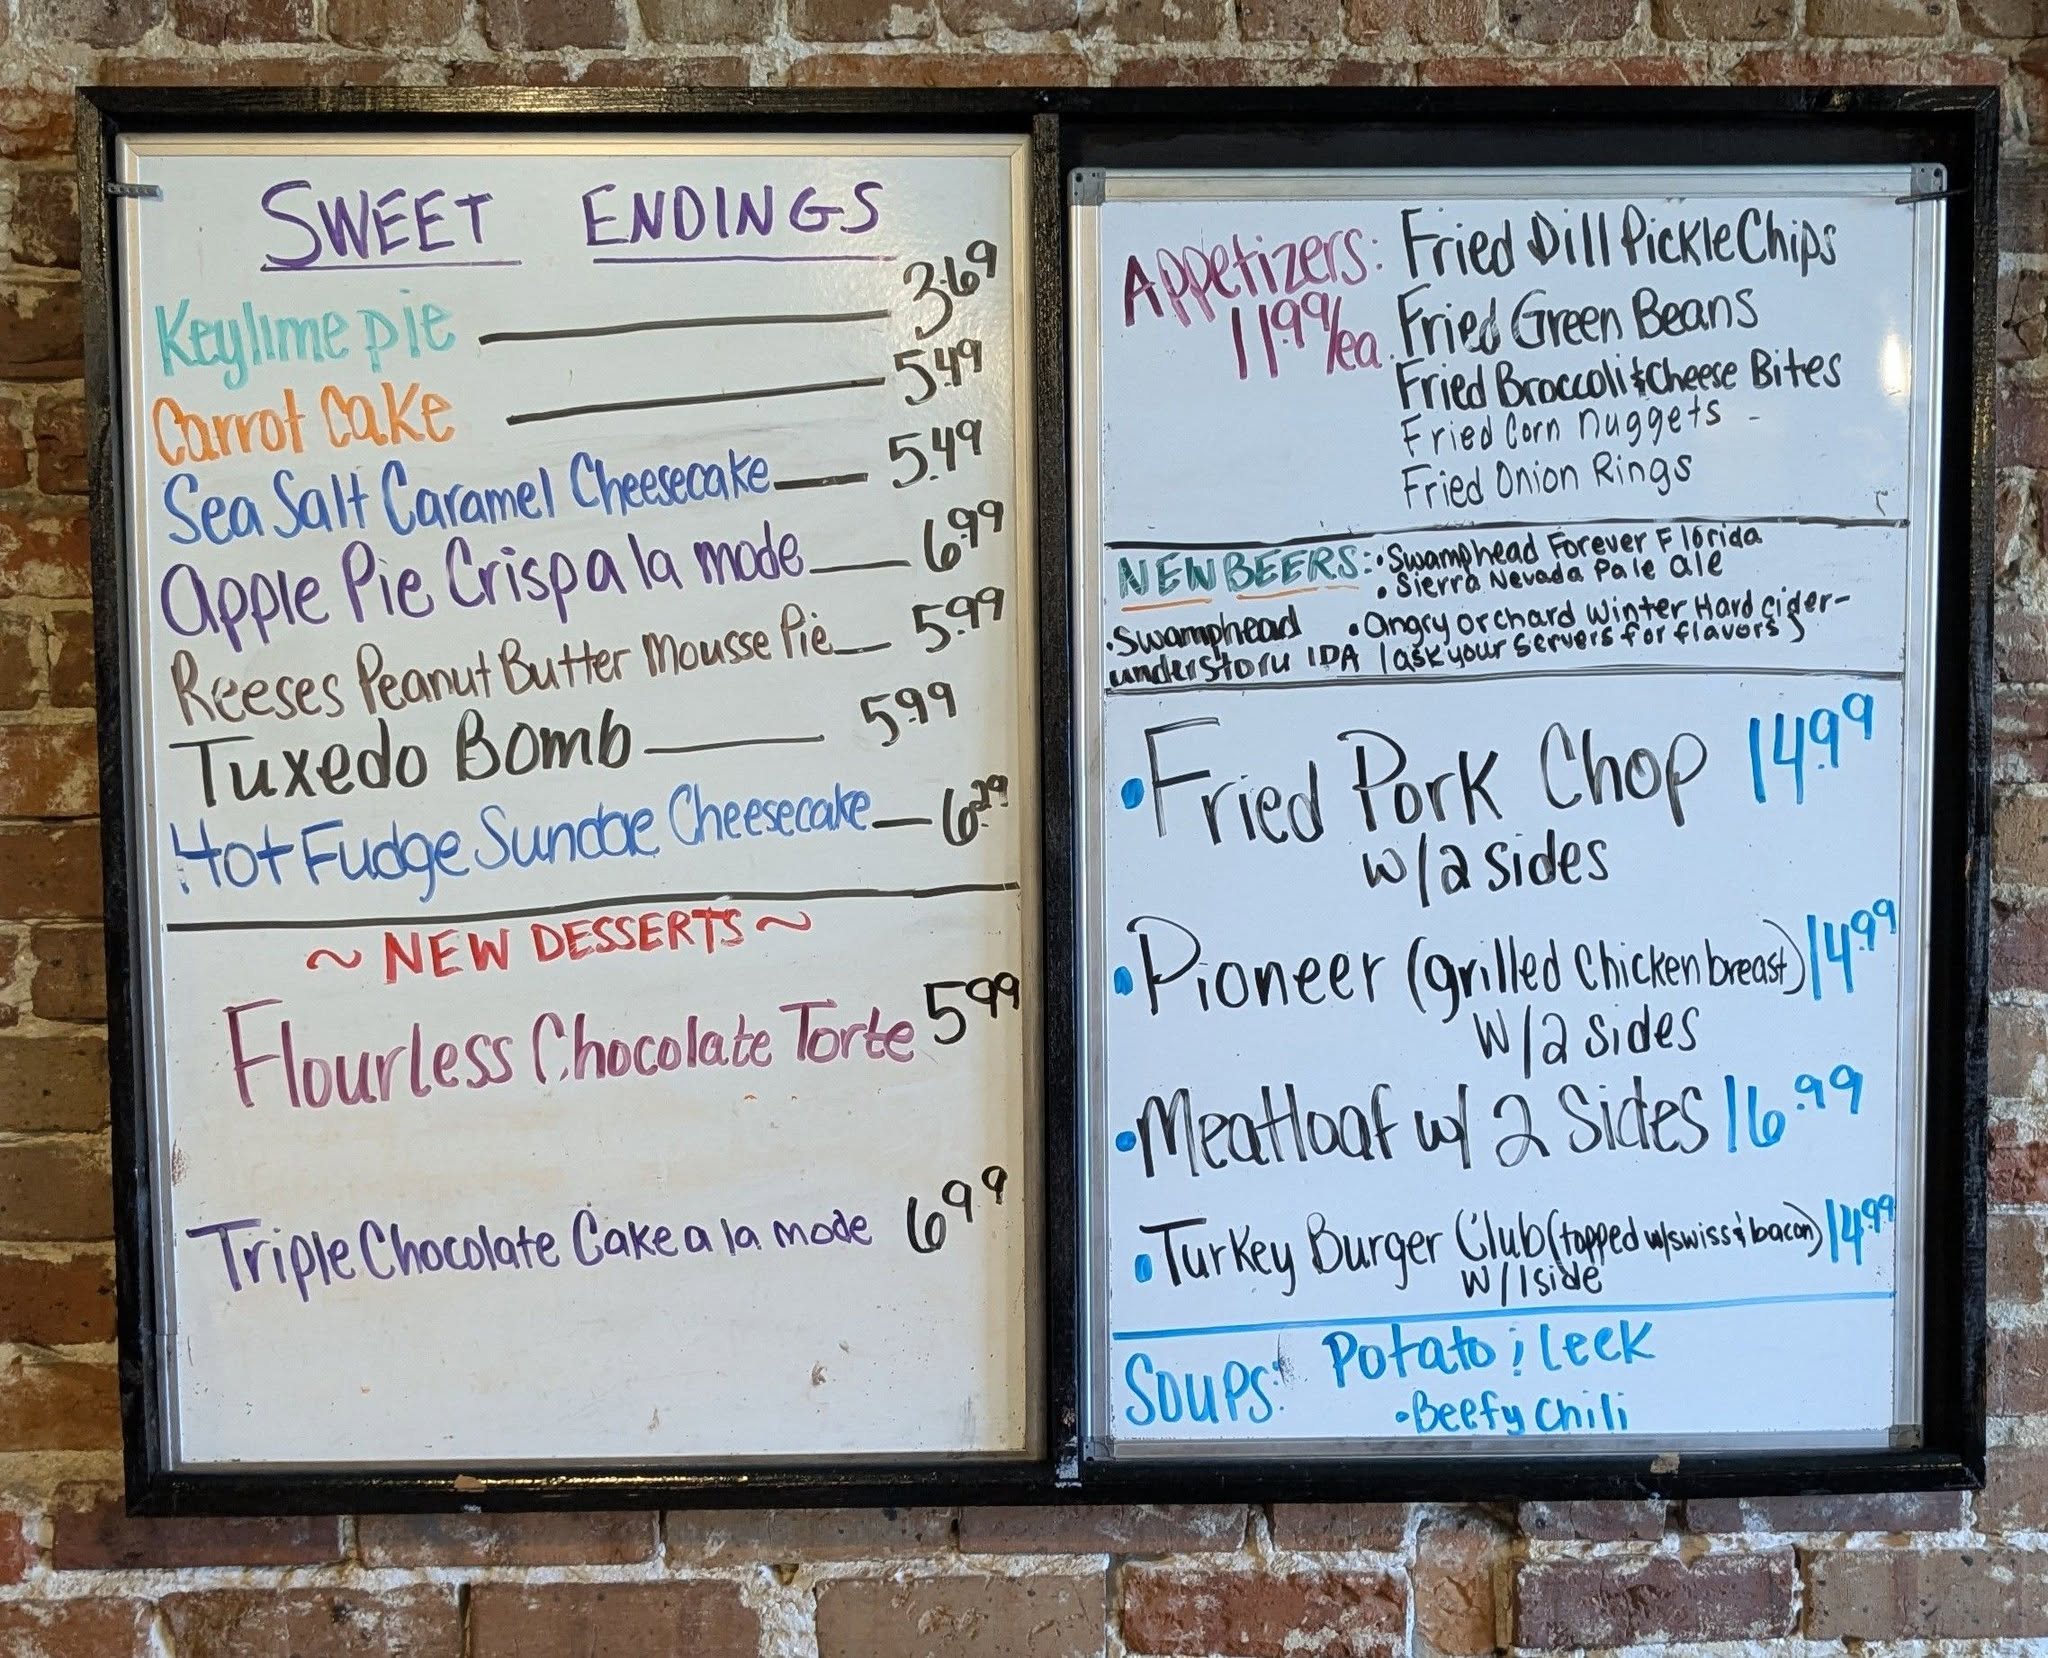 SWEET ENDINGS
Keylime pie 3.69
Carrot Cake 5.49
Sea Salt Caramel Cheesecake 5.49
Apple Pie Crisp a la mode 6.99
Reeses Peanut Butter Mousse Pie 5.99
Tuxedo Bomb 5.99
Hot Fudge Sundae Cheesecake 6.29
~ NEW DESSERTS ~
Flourless Chocolate Torte 5.99
Triple Chocolate Cake a la mode 6.99
Appetizers: Fried Dill Pickle Chips
11.99/ea. Fried Green Beans
Fried Broccoli & Cheese Bites
Fried Corn nuggets
Fried Onion Rings
NEW BEERS: • Swamphead Forever Florida
• Sierra Nevada Pale Ale
• Swamphead • Angry orchard Winter Hard Cider-
understory IDA (ask your servers for flavors)
• Fried Pork Chop 14.99
w/2 sides
• Pioneer (grilled chicken breast) 14.99
w/2 sides
• Meatloaf w/ 2 Sides 16.99
• Turkey Burger Club (topped w/swiss & bacon) 14.99
w/1 side
Soups: Potato & Leek
• Beefy Chili